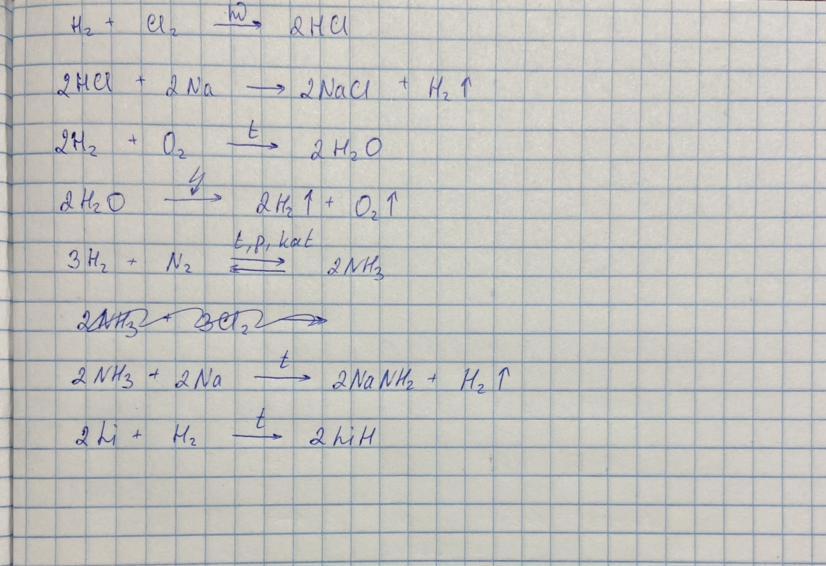 H₂ + Cl₂ —hν→ 2HCl
2HCl + 2Na → 2NaCl + H₂↑
2H₂ + O₂ —t→ 2H₂O
2H₂O —↯→ 2H₂↑ + O₂↑
3H₂ + N₂ ⇌ t, p, kat 2NH₃
2NH₃ + 3Cl₂ →
2NH₃ + 2Na —t→ 2NaNH₂ + H₂↑
2Li + H₂ —t→ 2LiH